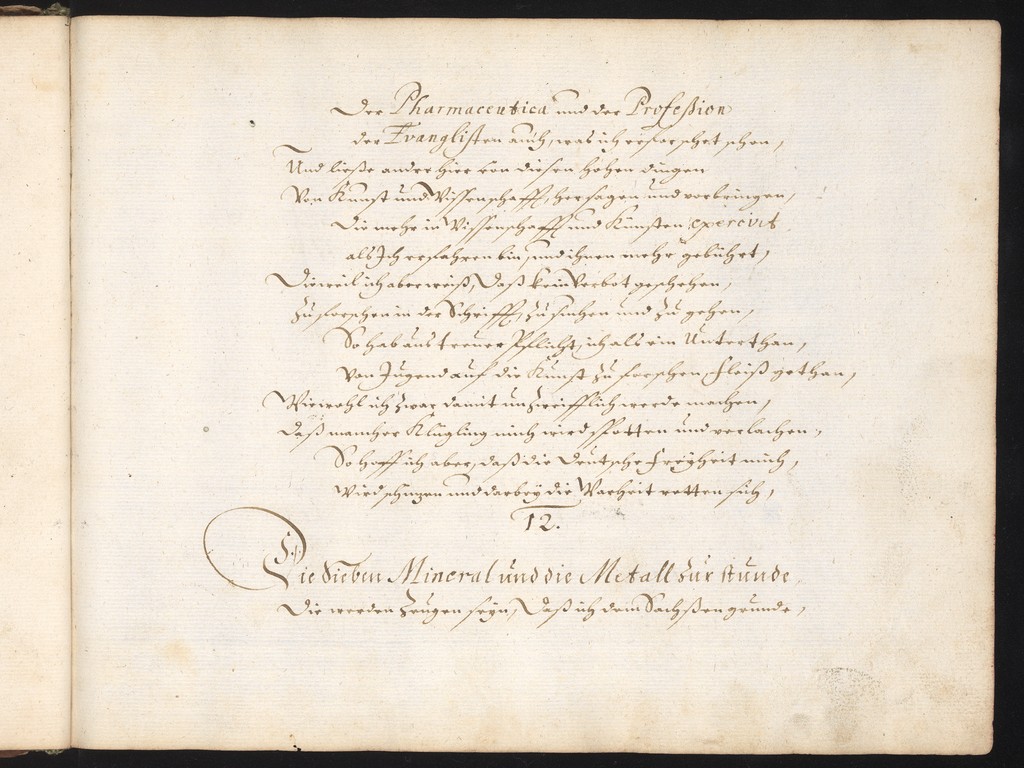 Der Pharmaceutica und der Profeßion
der Evanglisten auch, was ich erforschet schon,
Und ließe andre hier von diesen hohen dingen
Von Kunst und Wissenschafft, hersagen und vorbringen,
die mehr in Wissenschafft und Künsten experirt
als Ich erfahren bin, und ihnen mehr gebührt,
Dieweil ich aber weiß, Daß kein Verbot geschehen,
Zu forschen in der Schrifft, zu suchen und zu gehen,
So hab aus treuer Pflicht, ich als ein Unterthan,
Von Jugend auf die Kunst zu forschen, Fleiß gethan,
Wiewohl ich zwar damit unzweifflich werde machen,
daß mancher Klügling mich wird spotten und verlachen,
So hoff ich aber, daß die Deutsche Freyheit mich,
Wird schüzen und darbey die Warheit retten sich,
12.
Die Sieben Mineral und die Metall zur stunde,
Die werden zeugen seyn, Daß ich dem Sachßen grunde,